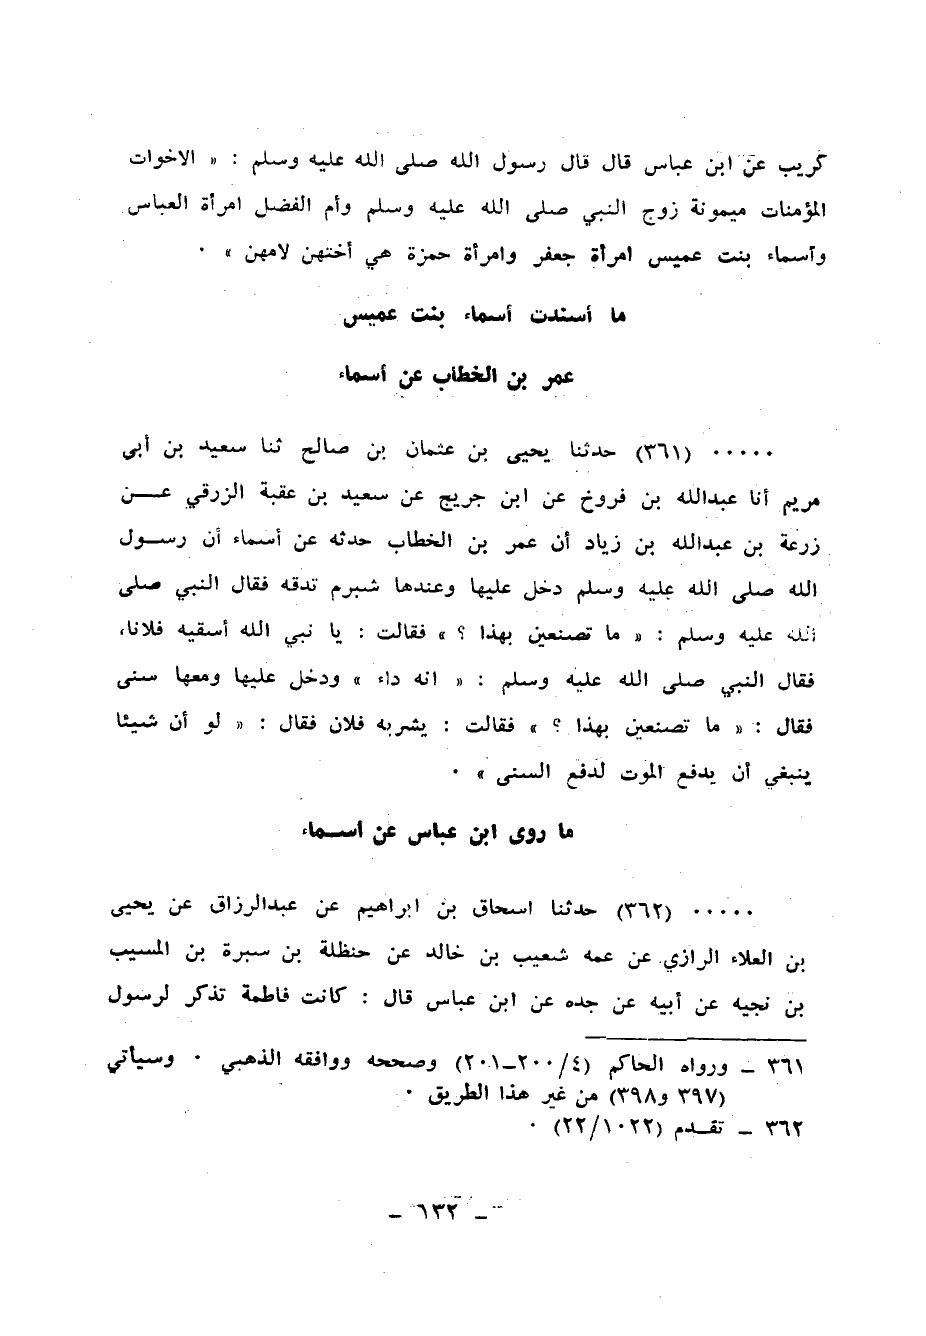 كريب عن ابن عباس قال قال رسول الله صلى الله عليه وسلم : « الاخوات
المؤمنات ميمونة زوج النبي صلى الله عليه وسلم وأم الفضل امرأة العباس
وأسماء بنت عميس امرأة جعفر وامرأة حمزة هي أختهن لامهن » ٠
ما أسندت أسماء بنت عميس
عمر بن الخطاب عن أسماء
٠٠٠٠٠ (٣٦١) حدثنا يحيى بن عثمان بن صالح ثنا سعيد بن أبي
مريم أنا عبدالله بن فروخ عن ابن جريج عن سعيد بن عقبة الزرقي عـــن
زرعة بن عبدالله بن زياد أن عمر بن الخطاب حدثه عن أسماء أن رســول
الله صلى الله عليه وسلم دخل عليها وعندها شبرم تدقه فقال النبي صلى
الله عليه وسلم : « ما تصنعين بهذا ؟ » فقالت : يا نبي الله أسقيه فلانا،
فقال النبي صلى الله عليه وسلم : « انه داء » ودخل عليها ومعها سنى
فقال : « ما تصنعين بهذا ؟ » فقالت : يشربه فلان فقال : « لو أن شيئا
ينبغي أن يدفع الموت لدفع السنى » ٠
ما روى ابن عباس عن أســماء
٠٠٠٠٠ (٣٦٢) حدثنا اسحاق بن ابراهيم عن عبدالرزاق عن يحيى
بن العلاء الرازي عن عمه شعيب بن خالد عن حنظلة بن سبرة بن المسيب
بن نجيه عن أبيه عن جده عن ابن عباس قال : كانت فاطمة تذكر لرسول
٣٦١ ــ ورواه الحاكم (٤/٢٠٠ــ٢٠١) وصححه ووافقه الذهبي ٠ وسيأتي
(٣٩٧ و٣٩٨) من غير هذا الطريق ٠
٣٦٢ ــ تقــدم (٢٢/١٠٢٢) ٠
ــ ١٣٢ ــ